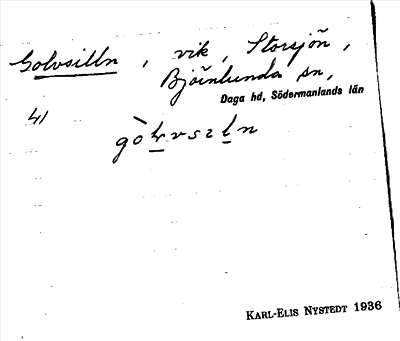 Golvsilln, vik, Storsjön,
Björnlunda sn,
Daga hd, Södermanlands län
41
KARL-ELIS NYSTEDT 1936